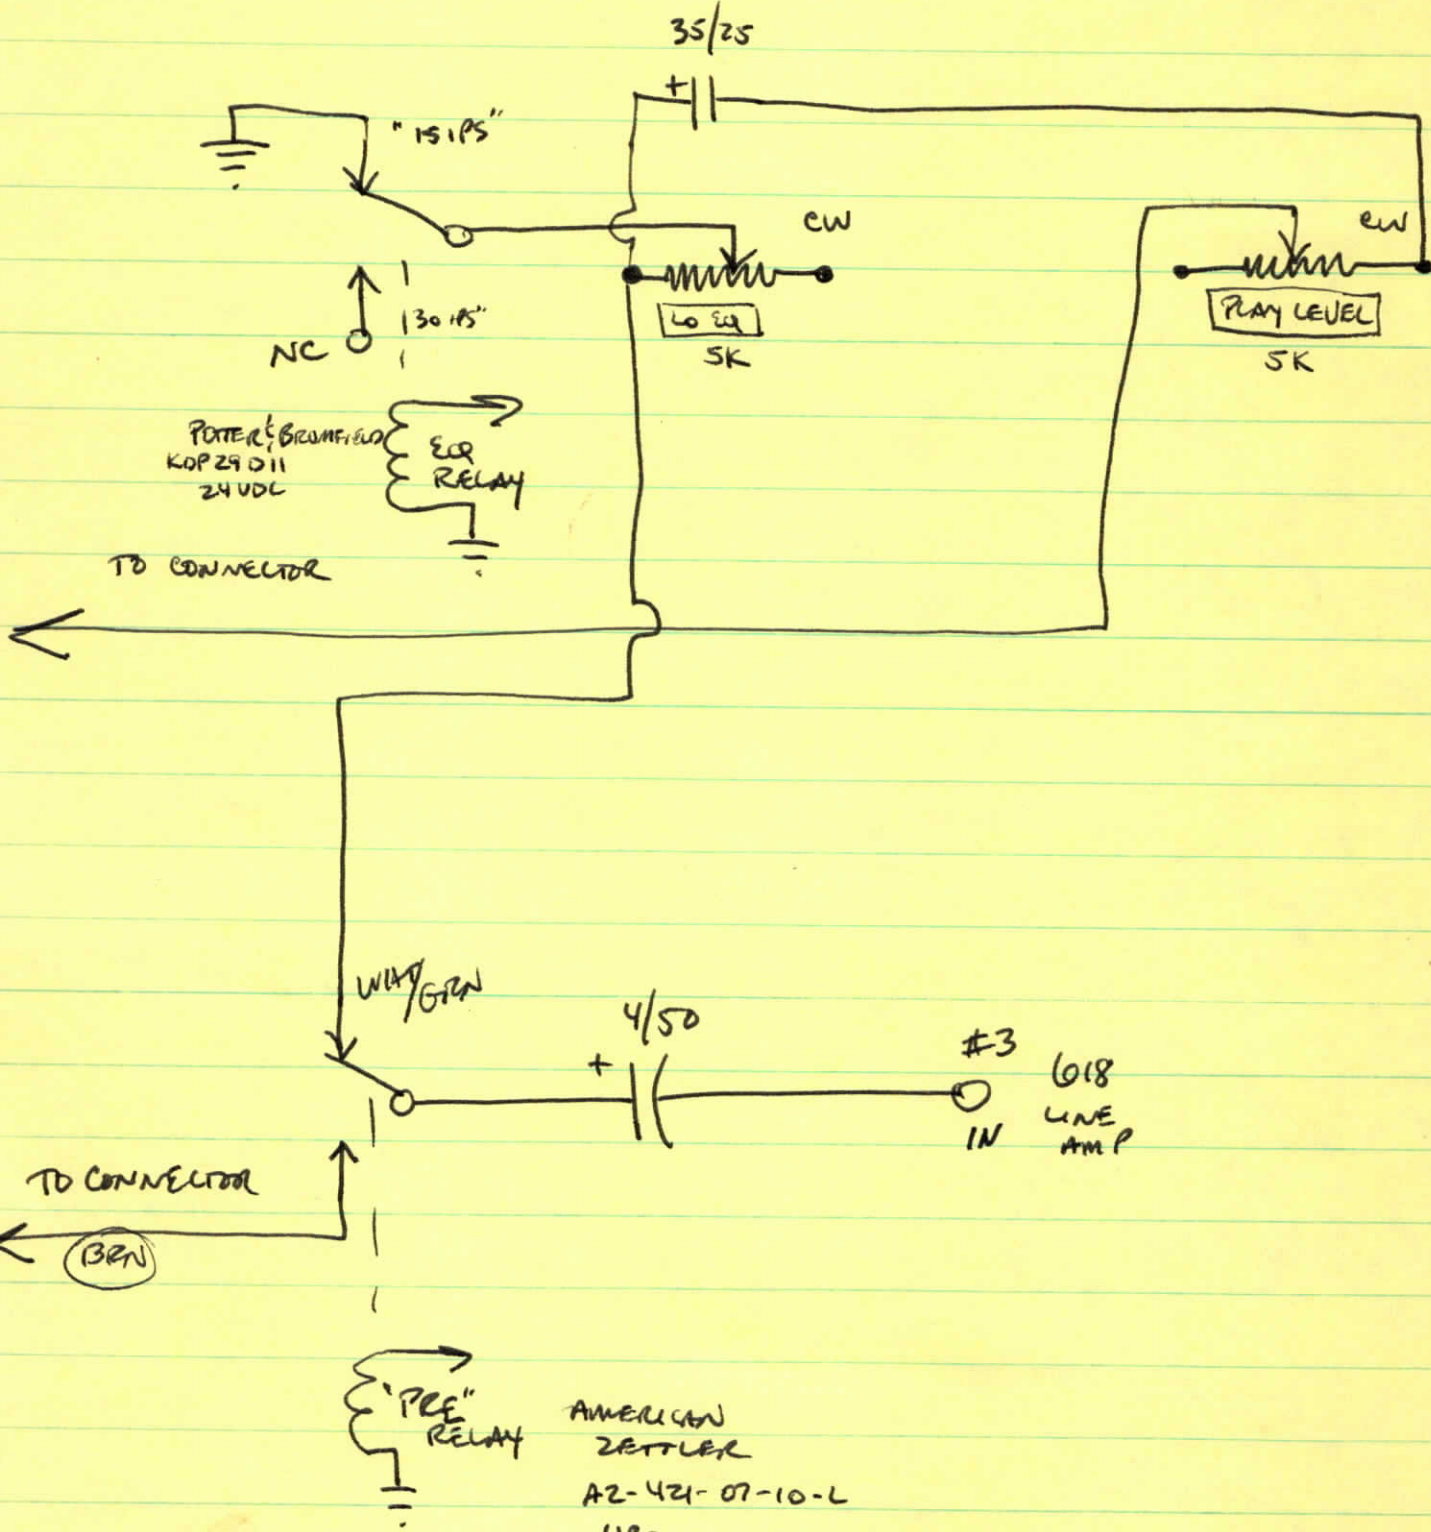 35/25
"15IPS"
CW
CW
30 IPS"
LO EQ
PLAY LEVEL
NC
5K
5K
POTTER & BRUMFIELD
KDP29D11
24VDC
EQ
RELAY
TO CONNECTOR
WHT/GRN
4/50
+
+
#3
618
LINE
AMP
IN
TO CONNECTOR
BRN
"PRE"
RELAY
AMERICAN
ZETTLER
AZ-421-07-10-L